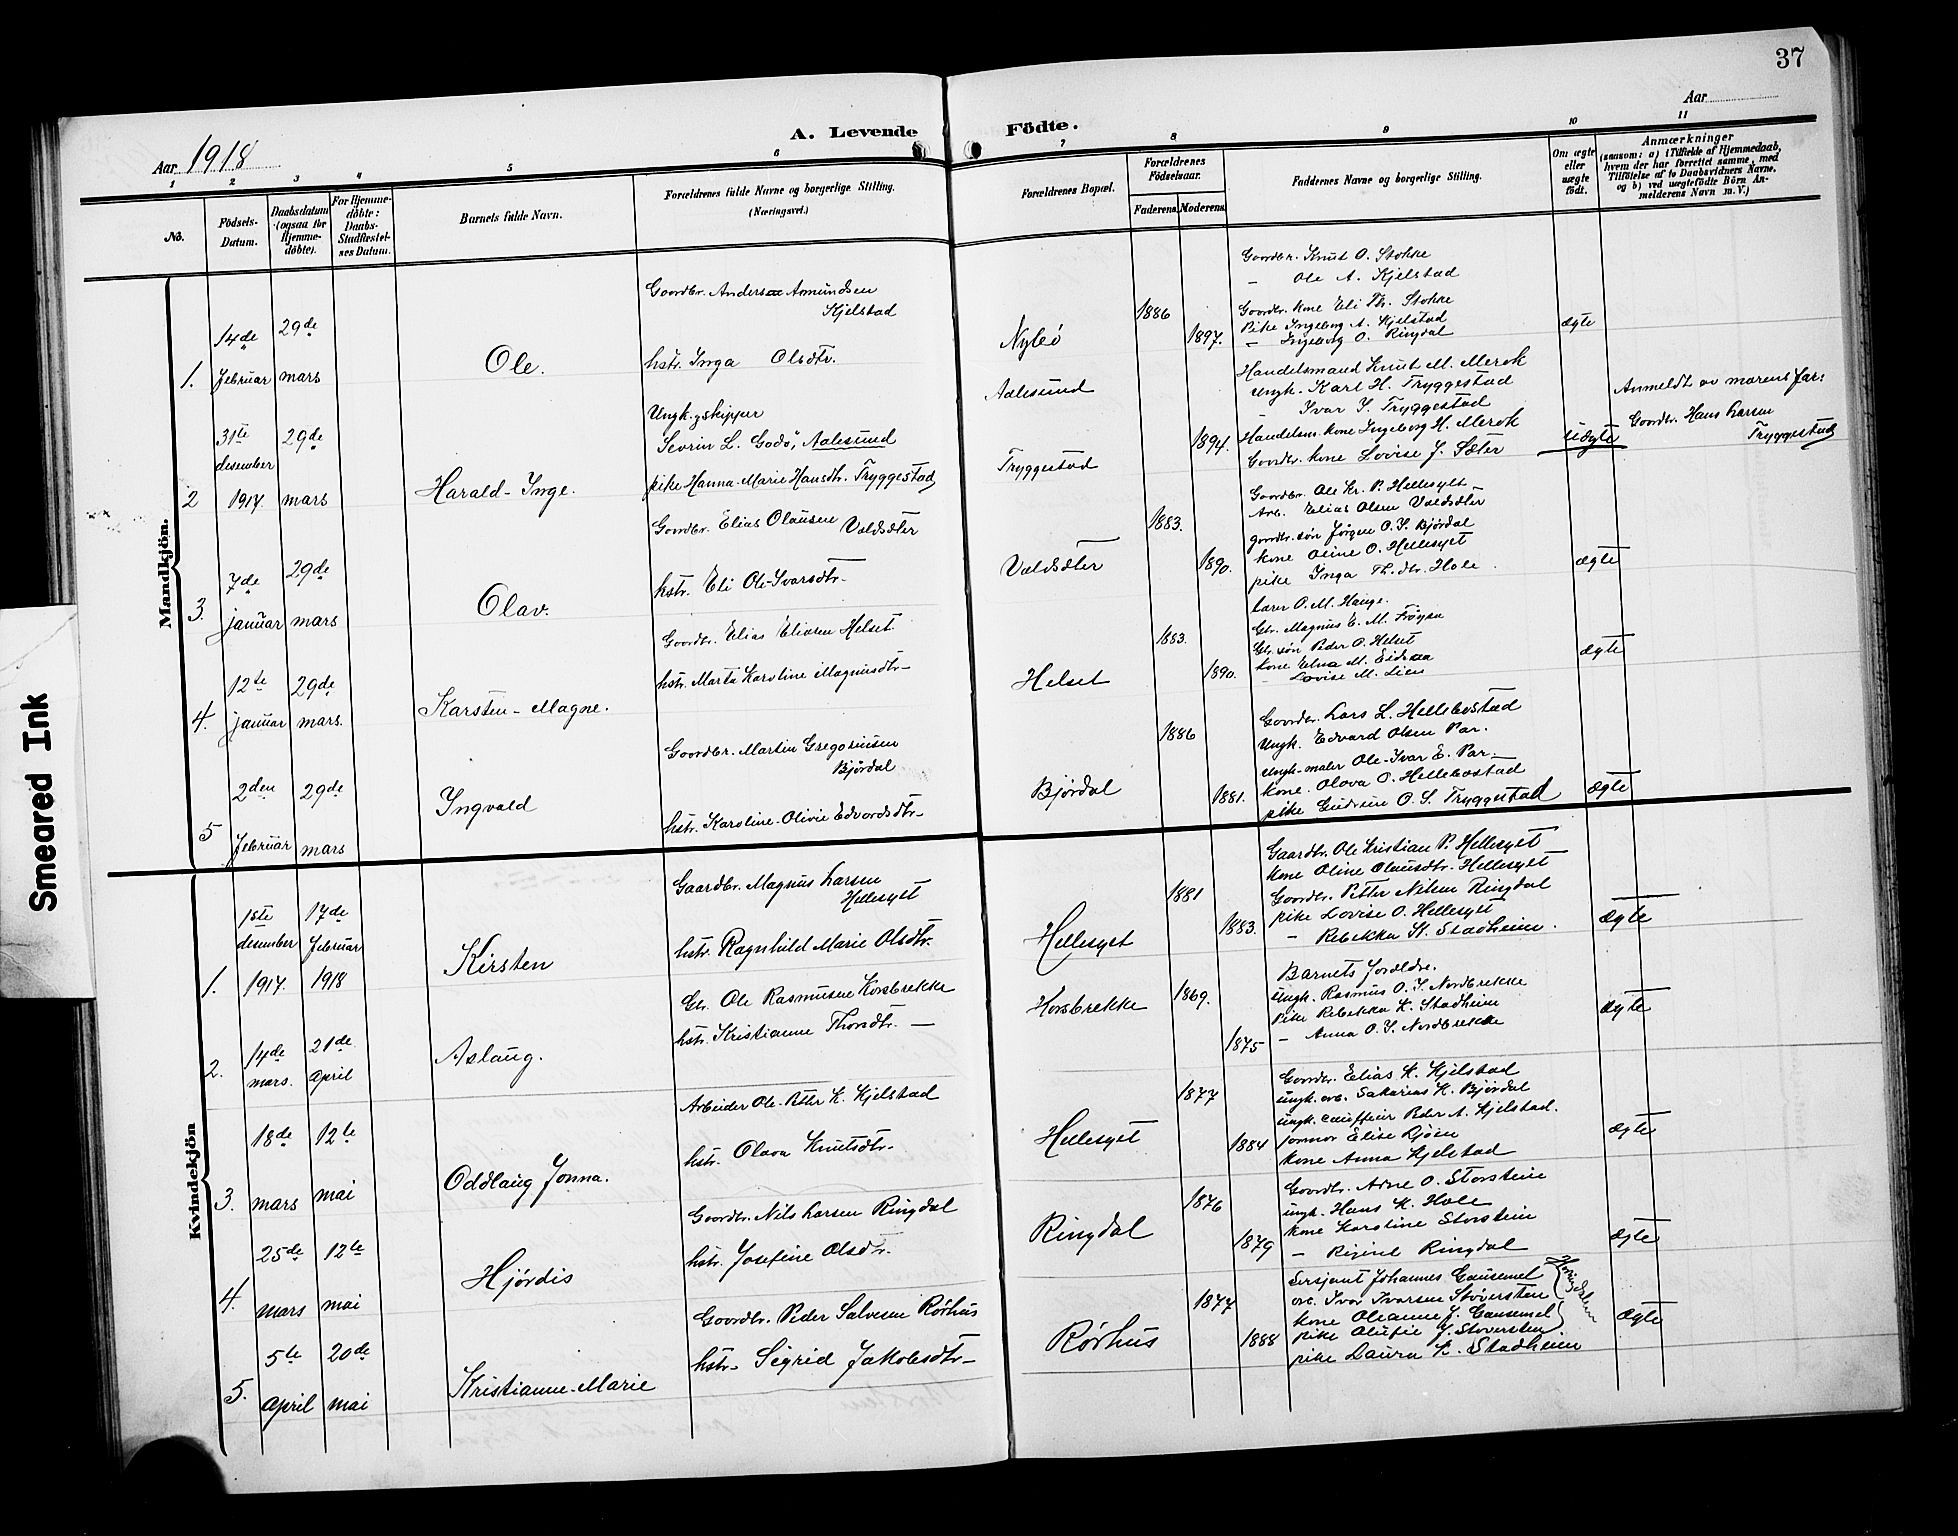 37
Smeared Ink
A. Levende Födte.
Aar 1918
Aar
1 2 3 4 5 6 7 8 9 10 11
No.
Födsels-Datum.
Daabsdatum (ogsaa for Hjemme-döbte).
For Hjemme-döbte: Daabs-Stadfæstel-ses Datum.
Barnets fulde Navn.
Forældrenes fulde Navne og borgerlige Stilling.
(Næringsvei.)
Forældrenes Bopæl.
Forældrenes Födselsaar.
Faderens. Moderens.
Faddernes Navne og borgerlige Stilling.
Om ægte eller uægte födt.
Anmærkninger
(saasom: a) i Tilfælde af Hjemmedaab,
hvem der har forrettet samme, med
Tilföielse af to Daabsvidners Navne,
og b) ved uægtefödte Börn An-
melderens Navn m. V.)
Mandkjön.
1.
14de Februar
29de mars
Ole.
Gaardbr. Anders Asmundsen
Kjelstad
hstr. Inga Olsdtr.
Nylø
1886
1897.
Gaardbr. Knut O. Stokke
— Ole A. Kjelstad
Gaardbr. kone Eli Th. Stokke
Pike Ingeborg A. Kjelstad
— Ingeborg O. Ringdal
ægte
2
31te desember 1917.
29de mars
Harald-Inge.
Ungk. skipper
Severin L. Godø, Aalesund
pike Hanna-Marie Hansdtr. Tryggestad
Aalesund
Tryggestad
1894.
Handelsmand Knut M. Merok
Ungk. Karl H. Tryggestad
— Ivar I. Tryggestad
Handelsm. kone Ingeborg H. Merok
Gaardbr. kone Lovise J. Sæter
uægte
Anmeldt av morens far:
Gaardbr. Hans Larsen
Tryggestad
3.
7de januar
29de mars
Olav.
Gaardbr. Elias Olausen Valdsæter
hstr. Eli Ole-Ivarsdtr.
Valdsæter
1883.
1890.
Gaardbr. Ole Kr. P. Hellesylt
Arb. Elias Olsen Valdsæter
gaardbr. søn Jørgen O. I. Bjørdal
kone Oline O. Hellesyet
pike Inga Th.dtr. Hole.
ægte
4.
12te januar
29de mars.
Karsten-Magne.
Gaardbr. Elias Eliasen Helset.
hstr. Marta Karoline Magnusdtr.
Helset
1883.
1890.
Lærer O. M. Hauge.
Gbr. Magnus E. M. Frøysa
Gbr. søn Peder O. Helset
kone Elna M. Eidsaa
— Lovise M. Lien
ægte
5
2den Februar
29de mars
Ingvald
Gaardbr. Martin Gregoriusen
Bjørdal
hstr. Karoline-Olivie Edvardsdtr.
Bjørdal
1886
1881.
Gaardbr. Lars L. Hellebostad
Ungk. Edvard Olsen Par.
Ungk. maler Ole-Ivar E. Par.
kone. Olava O. Hellebostad
pike Gudrun O. S. Tryggestad
ægte
Kvindekjön
1.
1ste desember 1917.
17de Februar 1918
Kirsten
Gaardbr. Magnus Larsen
Hellesyet
hstr. Ragnhild Marie Olsdtr.
Hellesyet
1881
1883.
Gaardbr. Ole Kristian P. Hellesyet
kone Oline Olausdtr. Hellesyet
Gaardbr. Petter Nilsen Ringdal
pike Lovise O. Hellesyet
— Rebekka K. Stadheim.
ægte
2.
14de mars.
21de april
Aslaug.
Gbr. Ole Rasmusen Korsbrekke
hstr. Kristianne Thorsdtr. —
Korsbrekke
1869.
1875
Barnets forældre.
ungk. Rasmus O. I. Nordbrekke
Pike Rebekka K. Stadheim
— Anna O. I. Nordbrekke
ægte
3.
18de mars
12te mai
Oddlaug Jonna.
Arbeider Ole-Petter K. Kjelstad
hstr. Olava Knutsdtr.
Hellesyet
1877
1884
Gaardbr. Elias K. Kjelstad
ungk. arb. Sakarias K. Bjørdal
ungk. chauffeur Peder A. Kjelstad.
jomfru Elise
kone Anna Kjelstad
ægte
4.
25de mars
12te mai
Hjørdis
Gaardbr. Nils Larsen Ringdal
hstr. Josefine Olsdtr.
Ringdal
1876
1879
Gaardbr. Arne O. Storstein
ungk. Hans K. Hole
kone Karoline Storstein
— Ringdal
ægte
5.
5te april
20de mai
Kristianne-Marie
Gaardbr. Peder Salvesen Rørhus
hstr. Sigrid Jakobsdtr.
Rørhus
1877
1888
Sersjant Johannes Gausemel
arb. Ivar Ivarsen Støversten
kone Oleanne J. Gausemel
pike Olufie J. Støversten
pike Laura K. Stadheim
ægte